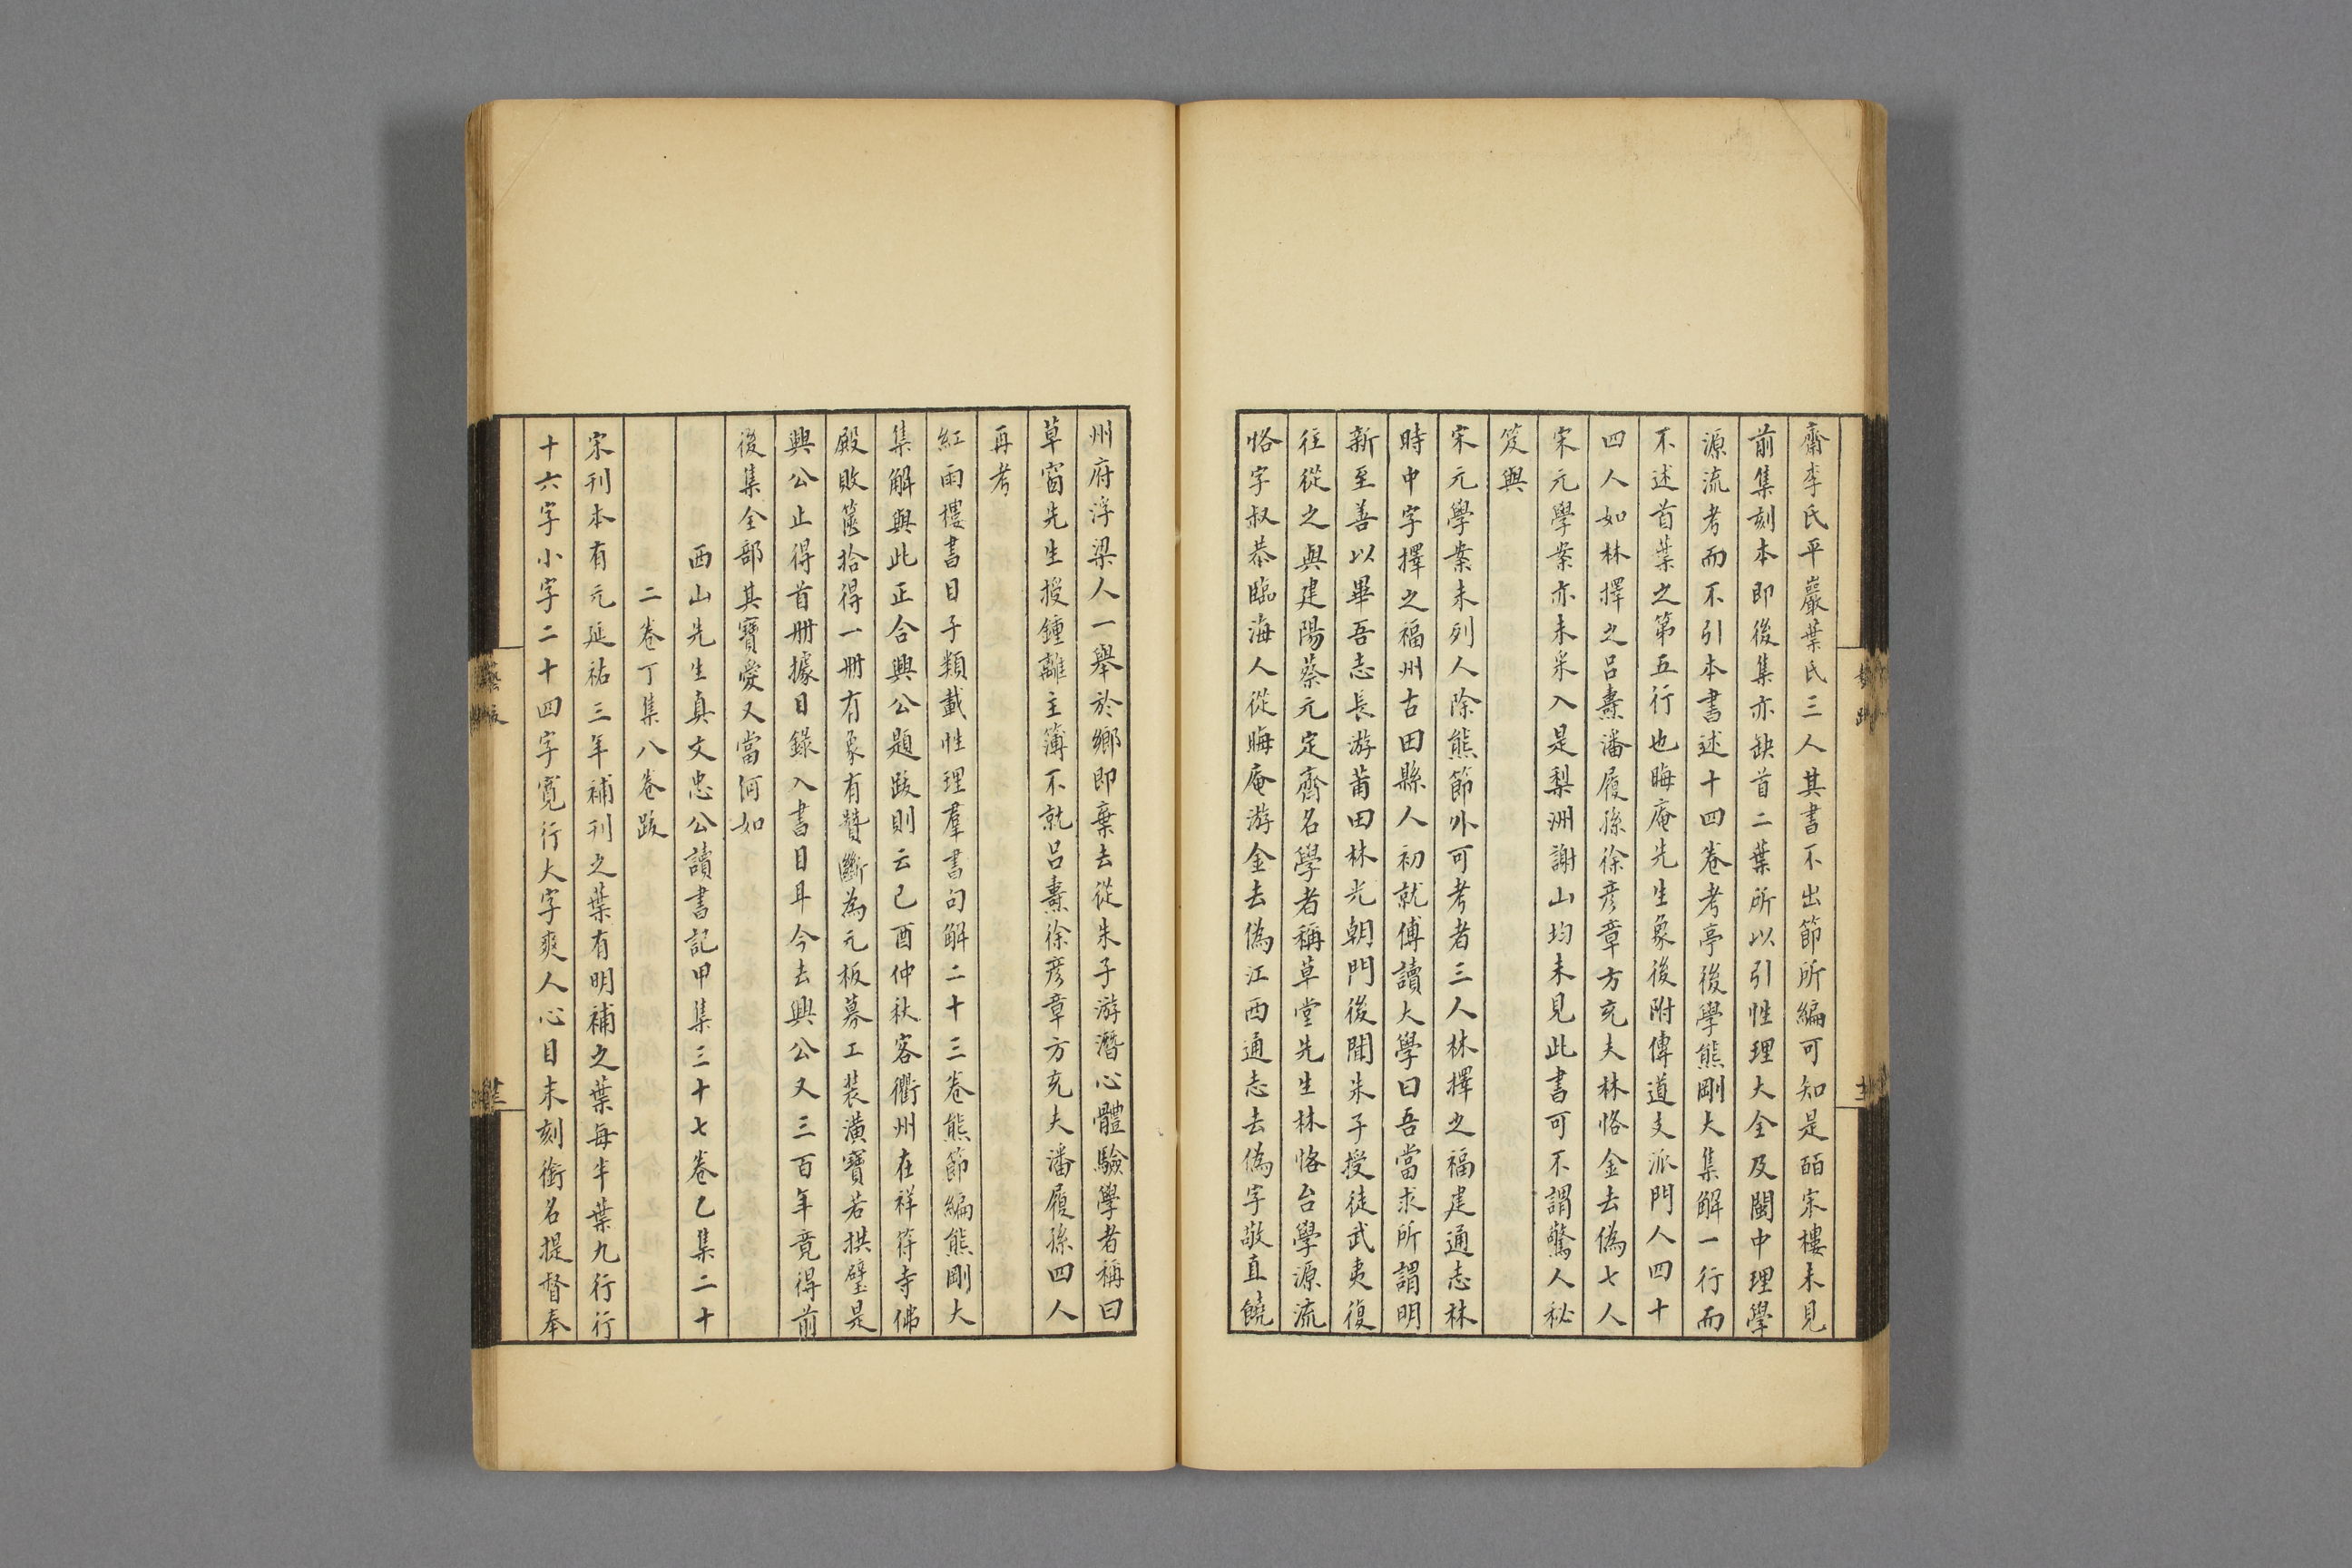 齋李氏平巖葉氏三人其書不出節所編可知是皕宋樓未見
前集刻本即後集亦缺首二葉所以引性理大全及閩中理學
源流考而不引本書述十四卷考亭後學熊剛大集解一行而
不述首葉之第五行也晦庵先生象後附傳道支派門人四十
四人如林擇之呂燾潘履孫徐彦章方充夫林恪金去偽七人
宋元學案亦未采入是梨洲謝山均未見此書可不謂驚人祕
笈與
宋元學案未列人除熊節外可考者三人林擇之福建通志林
時中字擇之福州古田縣人初就傅讀大學曰吾當求所謂明
新至善以畢吾志長游莆田林光朝門後聞朱子授徒武夷復
往從之與建陽蔡元定齊名學者稱草堂先生林恪台學源流
恪字叔恭臨海人從晦庵游金去偽江西通志去偽字敬直饒
州府浮梁人一舉於鄉即棄去從朱子游潛心體驗學者稱曰
草窗先生授鍾離主簿不就呂燾徐彦章方充夫潘履孫四人
再考
紅雨樓書目子類載性理羣書句解二十三卷熊節編熊剛大
集解與此正合興公題跋則云己酉仲秋客衢州在祥符寺佛
殿敗篋拾得一册有象有贊斷為元板募工裝潢寶若拱璧是
興公止得首册據目錄入書目耳今去興公又三百年竟得前
後集全部其寶愛又當何如
西山先生真文忠公讀書記甲集三十七卷乙集二十
二卷丁集八卷跋
宋刊本有元延祐三年補刊之葉有明補之葉每半葉九行行
十六字小字二十四字寬行大字爽人心目末刻銜名提督奉